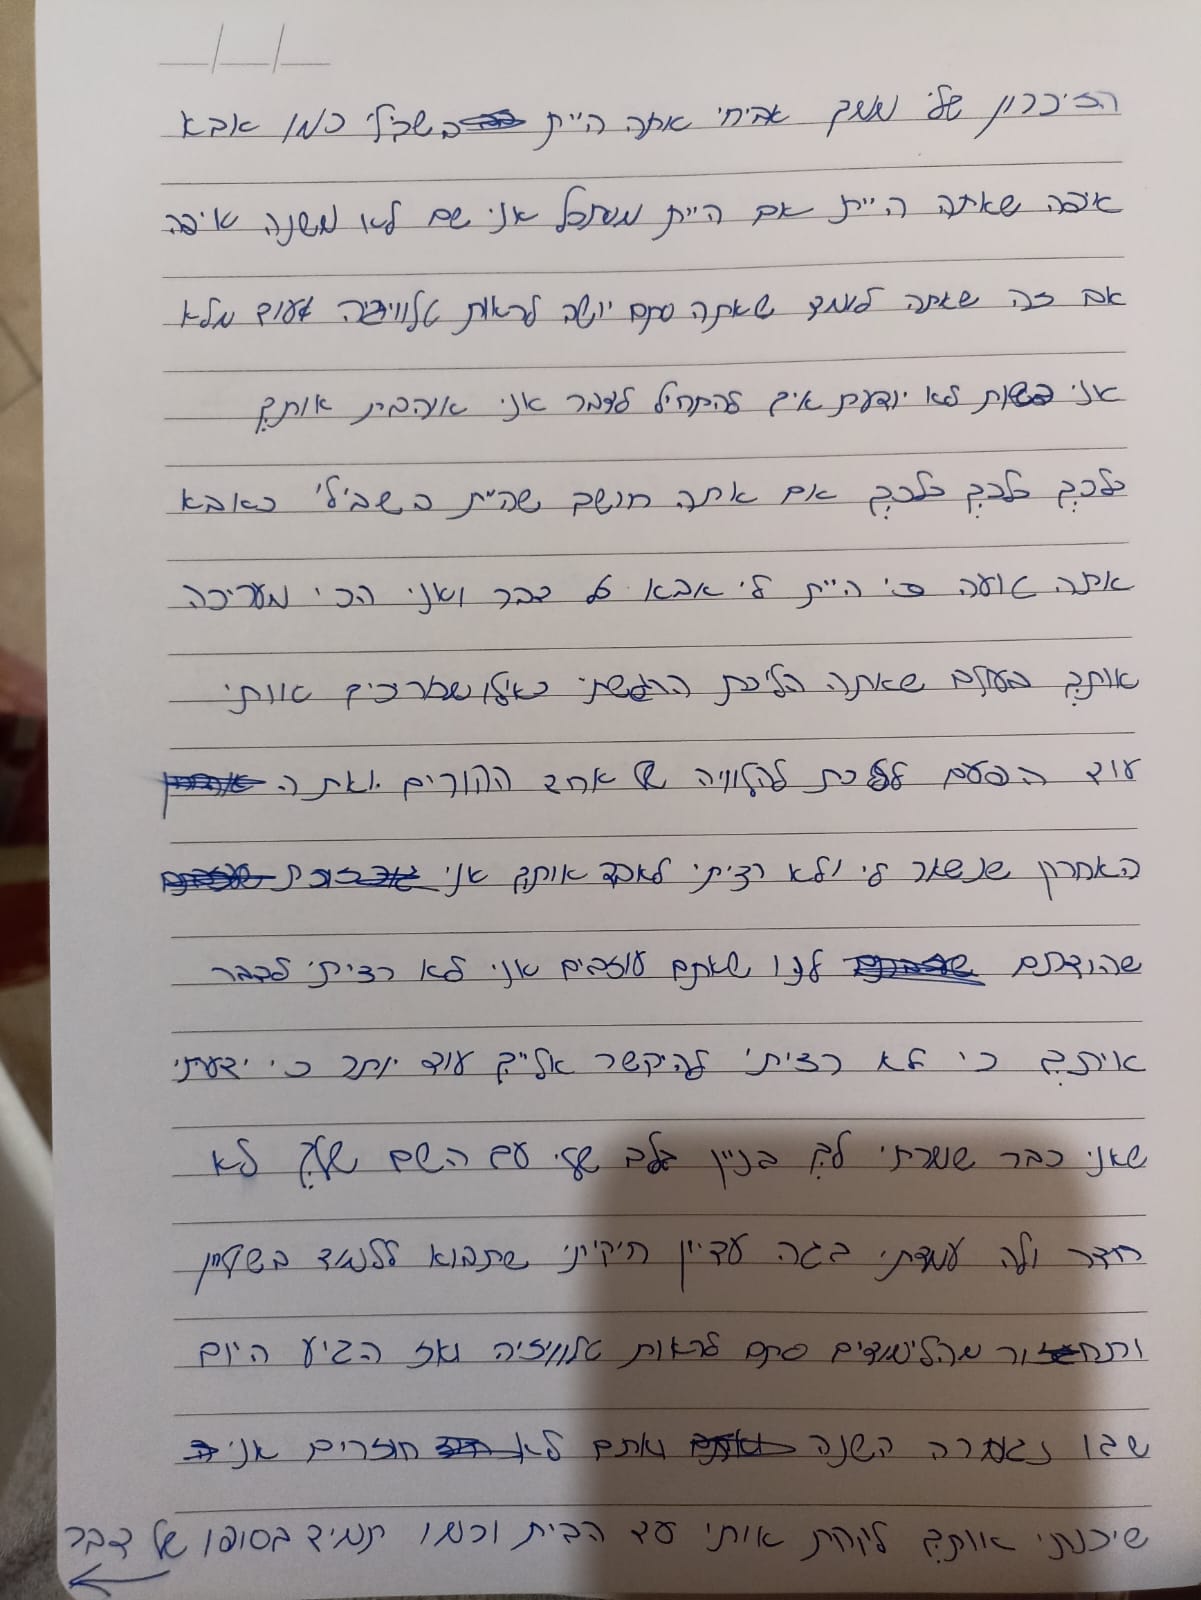 הזיכרון שלי ממך אביחי אתה היית בשבילי כמו אבא
איפה שאתה היית אם היית מסתכל אני שם לא משנה איפה
אם זה שאתה לומד שאתה סתם יושב לראות טלוויזיה ועוד מלא
אני פשוט לא יודעת איך להתחיל לדבר אני אוהבת אותך
כלכך כלכך כלכך אם אתה חושב שהית בשבילי כאבא
אתה טועה כי היית לי אבא לכל דבר ואני הכי מעריכה
אותך בעולם שאתה הלכת הרגשתי כאילו שמריכים אותי
עוד הפעם ללכת להלוויה של אחד ההורים ואת ה
האחרון שנשאר לי ולא רציתי לאבד אותך אני
שהודתם לנו שאתם עוזבים אני לא רציתי לדבר
איתך כי לא רציתי להיקשר אלייך עוד יותר כי ידעתי
שאני כבר שמרתי לך בניין בלב שלי עם השם שלך לא
חדר ולה עמדתי בזה עדיין חיכיתי שתבוא ללמוד בשקיון
ותחזור מהלימודים סתם לראות טלוויזיה ואז הגיע היום
שבו נגמרה השנה ואתם לא חוזרים אני
שיכנתי אותך לקחת אותי עד הבית וכמו תמיד בסופו של דבר